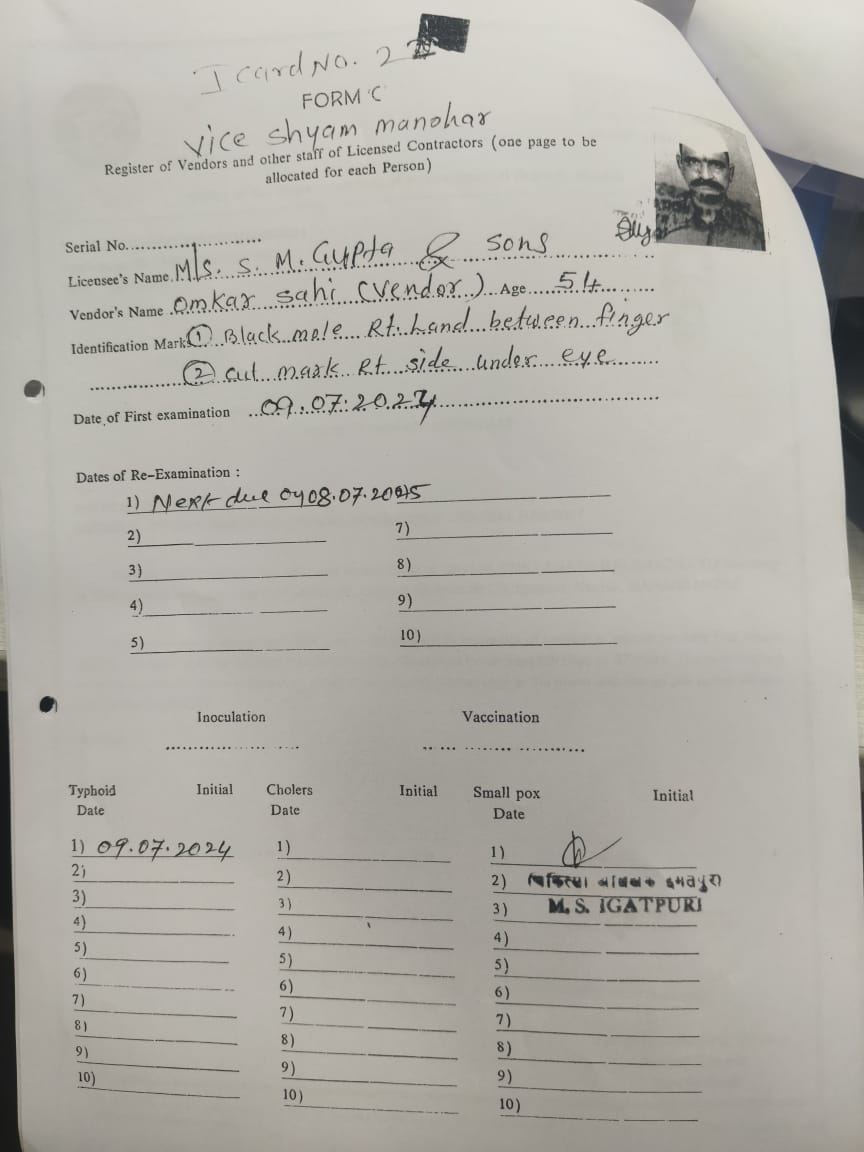 I card No. 2
FORM 'C'
Vice Shyam manohar
Register of Vendors and other staff of Licensed Contractors (one page to be
allocated for each Person)
Serial No.
Licensee's Name M/s. S. M. Gupta & Sons
Vendor's Name Omkar Sahi (Vendor) Age 54
Identification Marks ① Black mole Rt. hand between finger
② cut mark Rt side under eye
Date of First examination 09.07.2024
Dates of Re-Examination :
1) Next due 08.07.2025
2) 7)
3) 8)
4) 9)
5) 10)
Inoculation Vaccination
Typhoid Initial Cholers Initial Small pox Initial
Date Date Date
1) 09.07.2024 1) 1)
2) 2) 2) चिकित्सा इगतपुरी
3) 3) 3) M. S. IGATPURI
4) 4) 4)
5) 5) 5)
6) 6) 6)
7) 7) 7)
8) 8) 8)
9) 9) 9)
10) 10) 10)